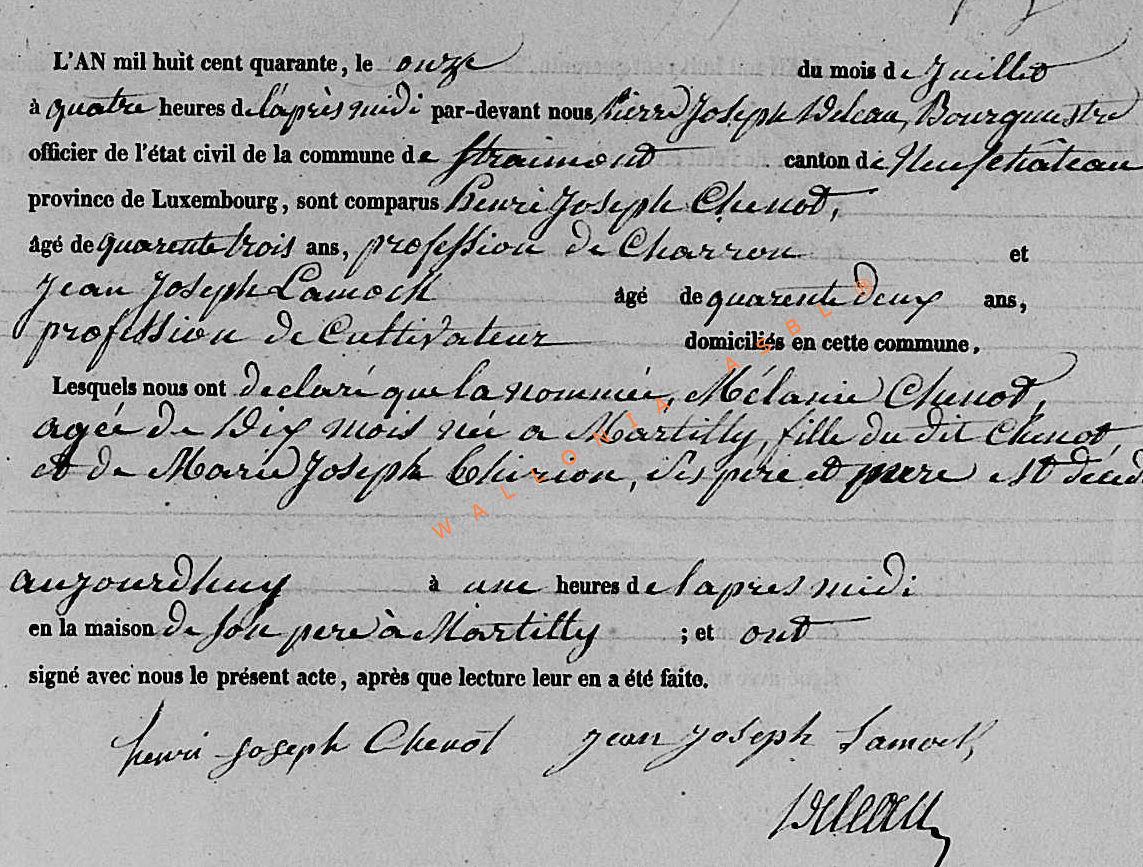 L'AN mil huit cent quarante, le onze du mois de Juillet
à quatre heures de l'après midi par-devant nous Pierre Joseph Deleau, Bourgmestre
officier de l'état civil de la commune de Straimont canton de Neufchâteau
province de Luxembourg, sont comparus henri Joseph Chenot,
âgé de quarente trois ans, profession de Charron et
Jean Joseph Lamock âgé de quarente deux ans,
profession de Cultivateur domiciliés en cette commune.
Lesquels nous ont declaré que la nommée, Mélanie Chenot,
agée de Dix mois née a Martilly, fille du dit Chenot,
et de Marie Joseph Thirion, ses père et mere est décéd
WALLONIA ASBL ©
aujourdhuy à une heures de lapres midi
en la maison de son pere à Martilly ; et ont
signé avec nous le présent acte, après que lecture leur en a été faite.
henri joseph Chenot jean joseph Lamock
Deleau